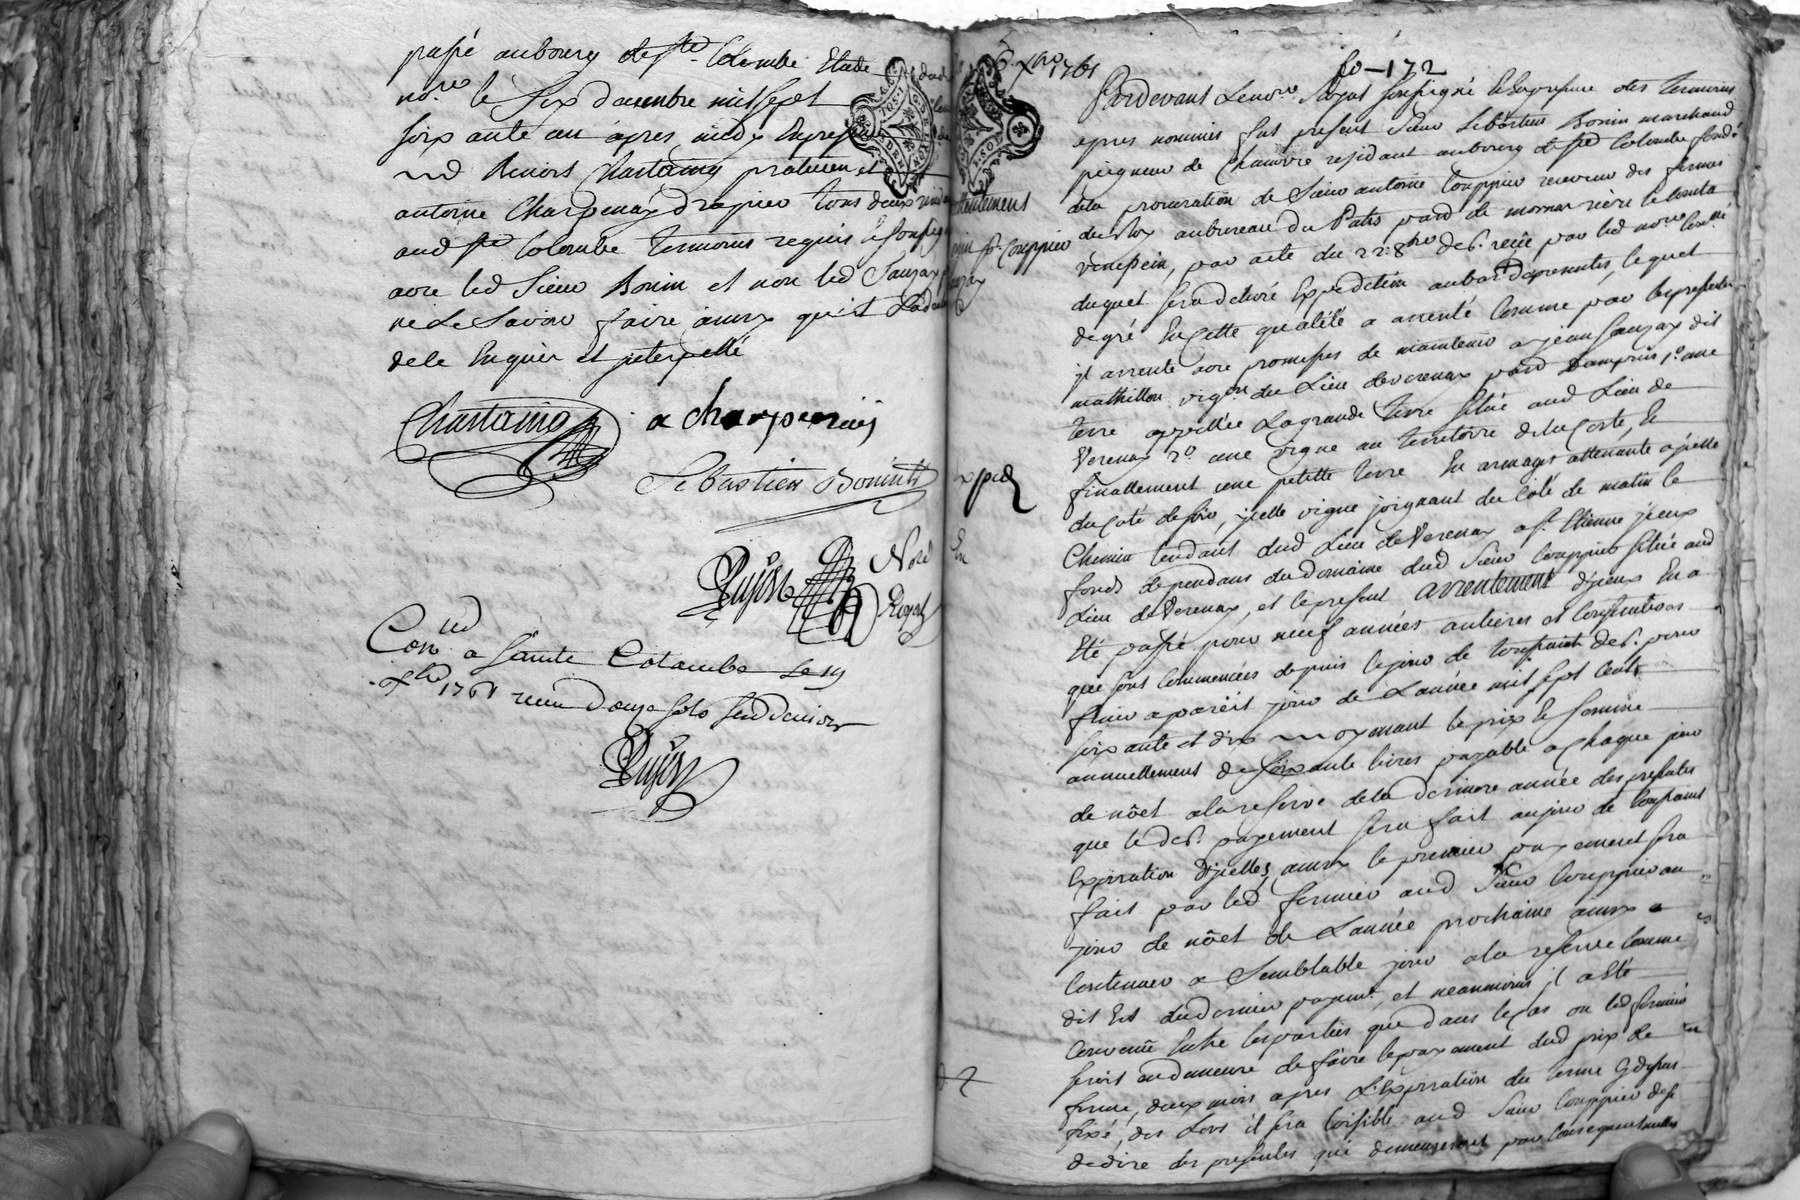 passé au bourg de Ste Colombe Etude
nore le six decembre mil sept
soixante un apres midy En presence
antoine Charpenay drapier tous deux
aud Ste Colombe temoins requis et soussignés
avec led Sieur Bonin et non led Sauzay
ne Le Savoir faire ainsy qu'il L'a declaré
de le Enquis et interpellé
Chartaing a charpenay
Sebastien Bonin
Puzon Nore Royal
Conlé a Sainte Colombe Le 19
xbre 1761 reçu douze sols six deniers
Puzon
6 xbre 1761
fo 172
Pardevant Le nore Royal soussigné Et En presence des temoins
apres nommés fut present Sieur Sebastien Bonin marchand
peigneur de chanvre residant au bourg de Ste Colombe fondé
de la procuration de Sieur antoine Couppier receveur des fermes
du Roy au bureau du Patis par de mornan
par acte du 22 8bre der. reçu par led nore
duquel sera delivré Expedition au bas des presentes, lequel
de gré En cette qualité a arrenté comme par les presentes
il arrente avec promesses de maintenir a jean Sauzay dit
mathillon vigon du Lieu de verenay parr d'ampuis 1o une
terre appellée La grande terre scituée aud Lieu de
Verenay 2o une vigne au territoire de la Coste, Et
finallement une petitte terre En armages attenante a jcelle
du Coté de soir, jcelle vigne joignant du Coté de matin le
Chemin tendant dud Lieu de Verenay a St Etienne jceux
fonds dependans du domaine dud Sieur Couppier scitué aud
Lieu de Verenay, et le present arrentement d'jceux En a
Eté passé pour neuf années entieres et consecutives
que sont Commencées depuis le jour de toussaint der. pour
finir a pareil jour de L'année mil sept cents
soixante et dix moyenant le prix Et somme
annuellement de soixante livres payable a chaque jour
de nöel a la reserve de la derniere année des presentes
que le der. payement sera fait au jour de toussaint
Expiration d'jcelles, ainsy le premier payement sera
fait par led fermier aud Sieur Couppier au
jour de nöel de L'année prochaine ainsy a
Continuer a Semblable jour a la reserve Comme
dit Est du dernier payemt, et neanmoins il a Eté
Convenû Entre les parties que dans le cas ou led fermier
seroit en demeure de faire le payement dud prix de
ferme, deux mois apres L'Expiration du terme
fixé, des Lors il sera loisible aud Sieur Couppier de se
dedire des presentes qui demeureront par consequent nulles